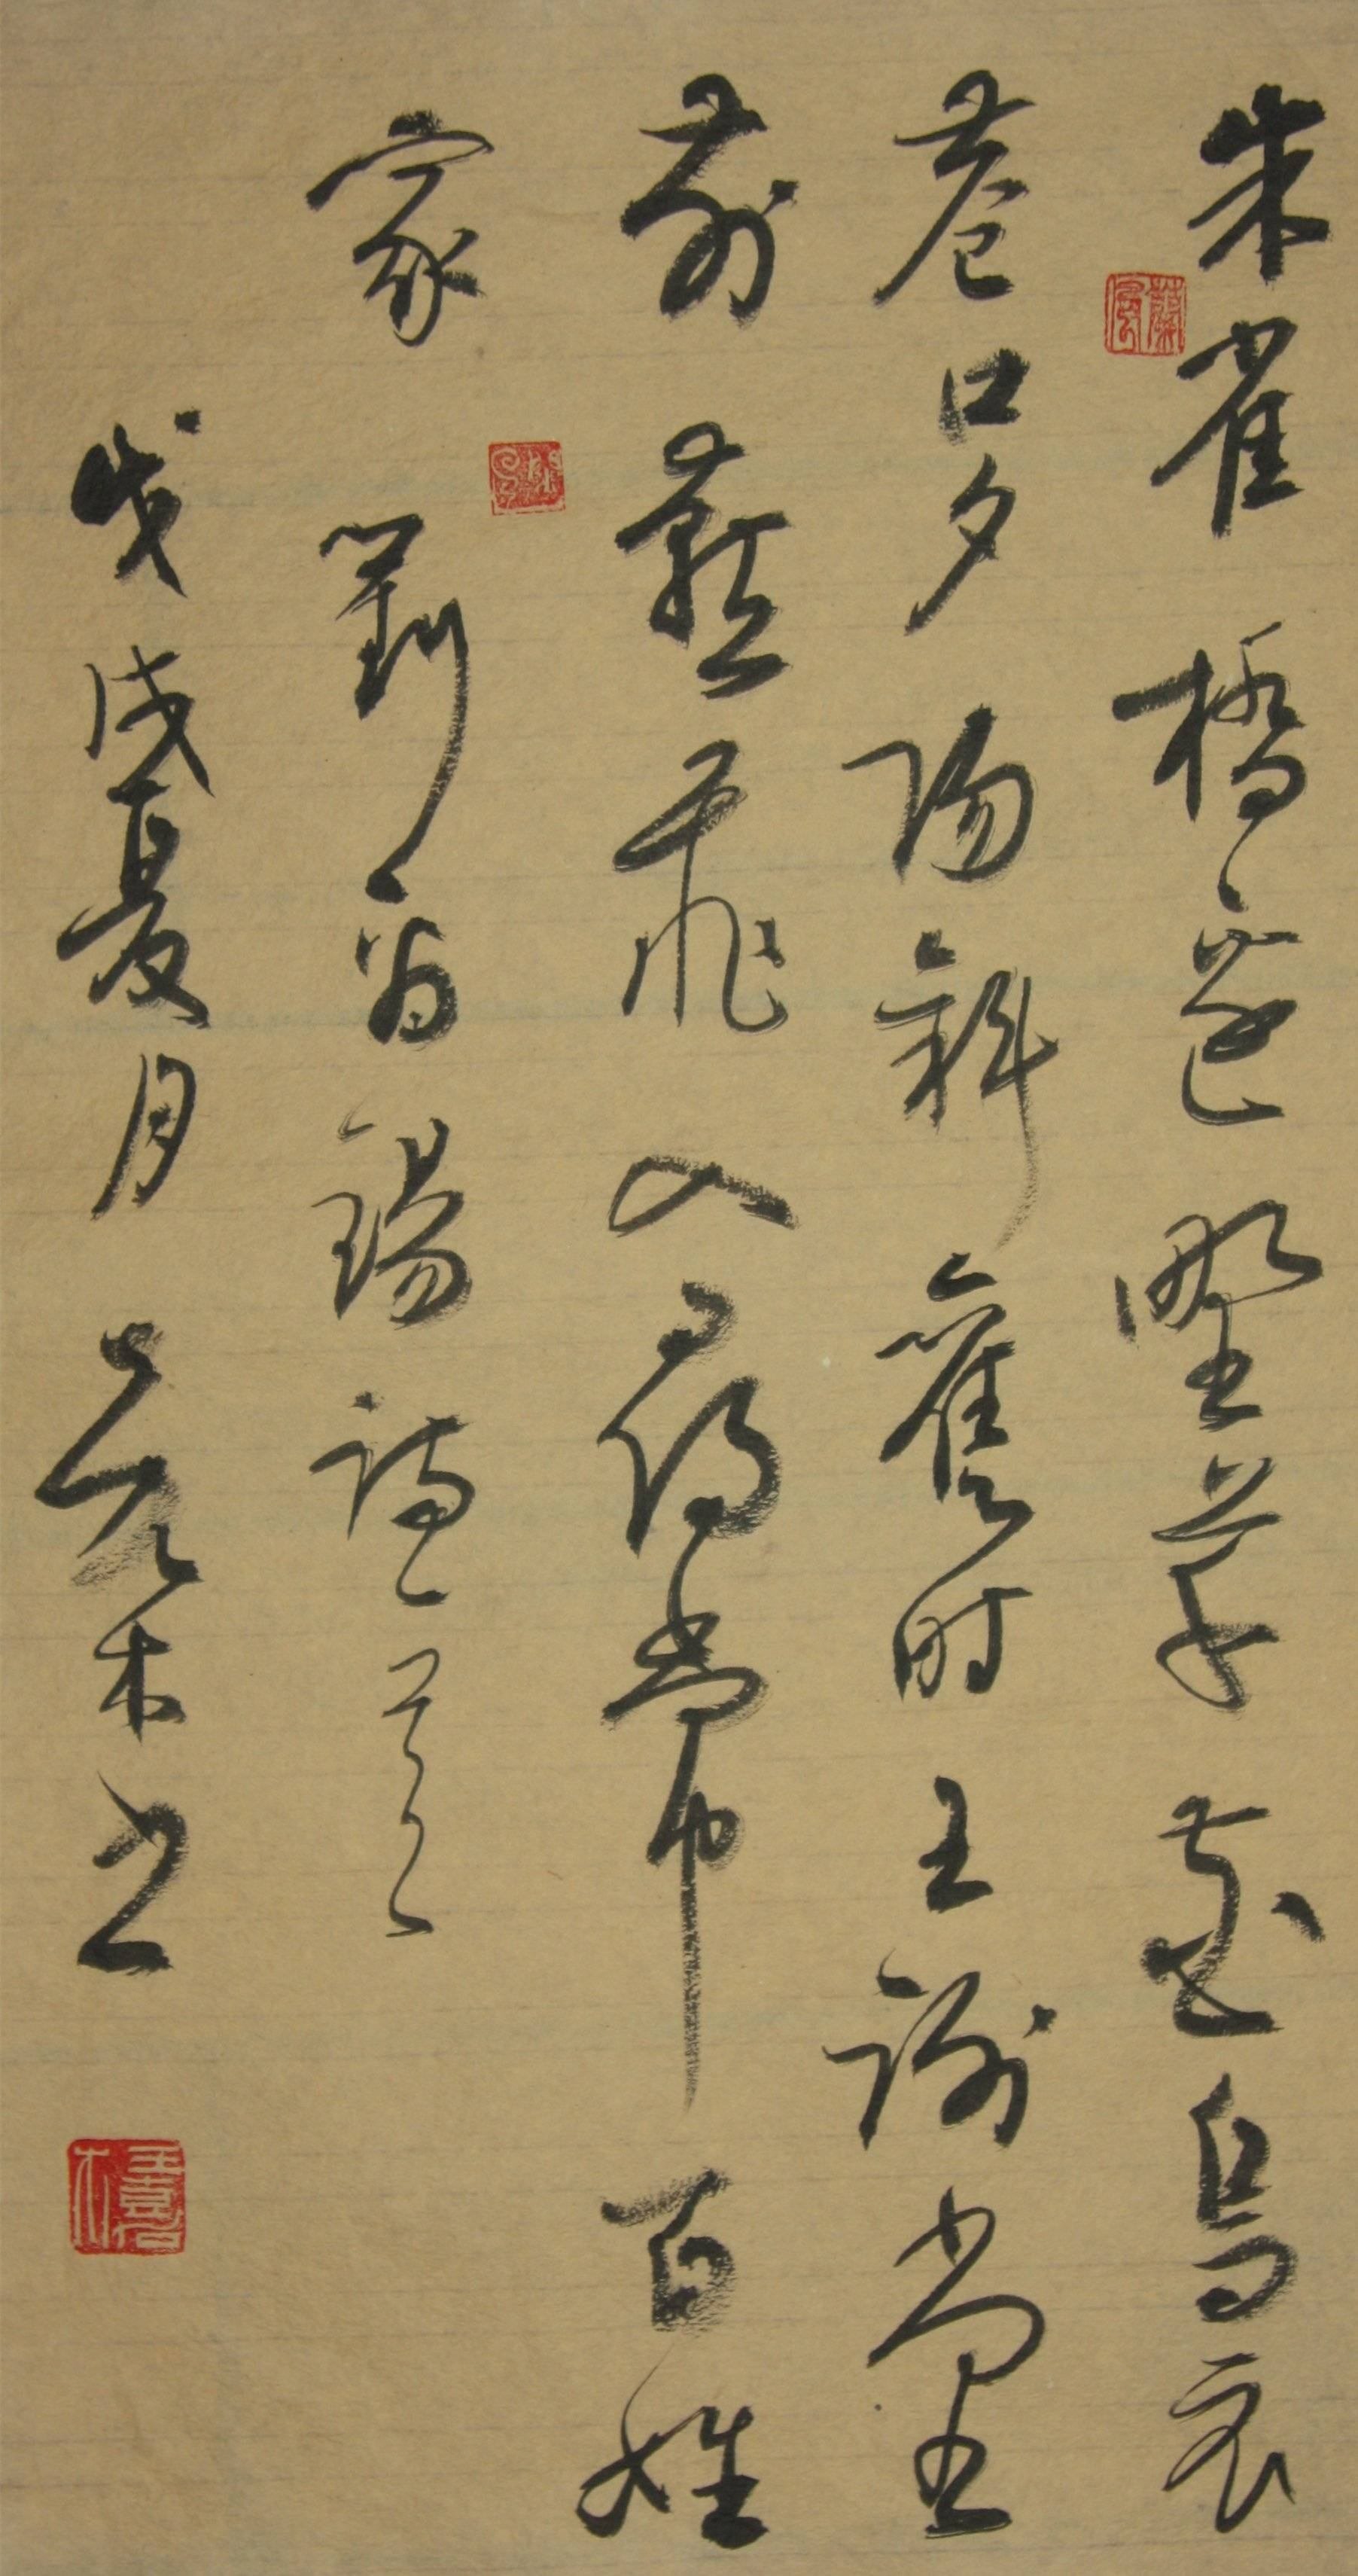 朱雀橋邊野草花烏衣
巷口夕陽斜舊時王謝堂
前燕飛入尋常百姓
家 劉禹錫詩一首
戊戌夏月 木書